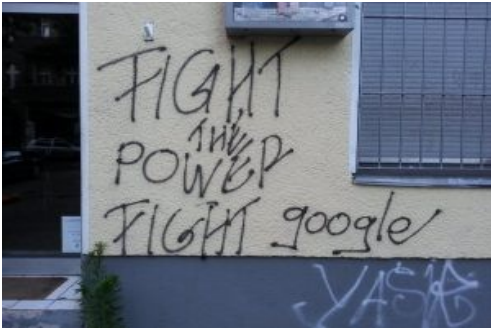 FIGHT
THE
POWER
FIGHT google
YASIR